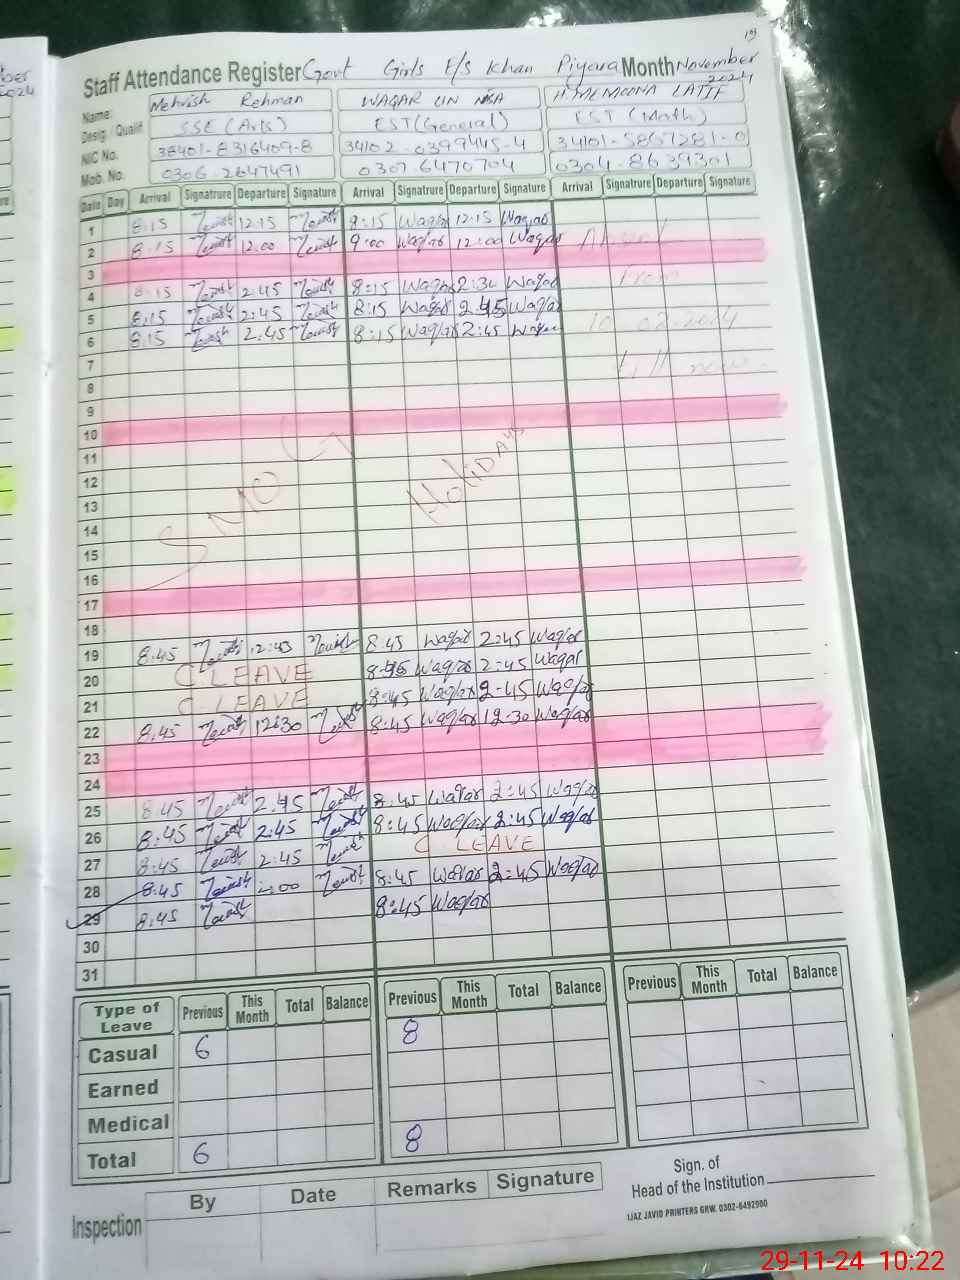 19
Staff Attendance Register Govt Girls E/S Khan Piyara Month November 2024
Name: Mehvish Rehman WAQAR UN NISA MEMOONA LATIF
Desig. Qualif. SSE (Arts) EST (General) EST (Math)
NIC No. 38401-8316409-8 34102-0399445-4 34101-5867281-0
Mob. No. 0306-2647491 0307-6470704 0304-8639301
Date Day Arrival Signatrure Departure Signature Arrival Signatrure Departure Signature Arrival Signatrure Departure Signature
1 8:15 12.15 8:15 Waqar 12.15 Waqar
2 8:15 12.00 9:00 Waqar 12:00 Waqar Absent
3 From
4 8:15 2.45 8:15 Waqar 2:30 Waqar
5 8:15 2:45 8:15 Waqar 2.45 Waqar 10-02-2024
6 8:15 2:45 8:15 Waqar 2:45 Waqar
7 till now.
8
9
10
11
12 SMOG HOLIDAYS
13
14
15
16
17
18
19 8:45 2:45 8:45 Waqar 2:45 Waqar
20 C. LEAVE 8:45 Waqar 2:45 Waqar
21 C. LEAVE 8:45 Waqar 2:45 Waqar
22 8:45 12:30 8:45 Waqar 12:30 Waqar
23
24
25 8:45 2:45 8:45 Waqar 2:45 Waqar
26 8:45 2:45 8:45 Waqar 2:45 Waqar
27 8:45 2:45 C. LEAVE
28 8:45 8:45 Waqar 2:45 Waqar
29 8:45 8:45 Waqar
30
31
Type of Leave Previous This Month Total Balance Previous This Month Total Balance Previous This Month Total Balance
Casual 6 8
Earned
Medical
Total 6 8
Inspection By Date Remarks Signature
Sign. of
Head of the Institution
IJAZ JAVID PRINTERS GRW. 0302-6492900
29-11-24 10:22